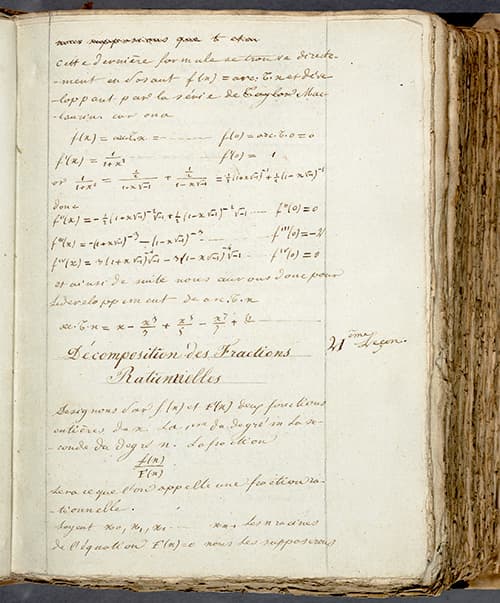 nous supposions que t etau
cette dernière formule se trouve directe-
-ment en posant f(x) = arc.t.x et déve-
-loppant par la série de Taylor Mac-
-laurin. car on a
f(x) = arc.t.x = ........ f(0) = arc.t.0 = 0
f'(x) = 1/(1+x²) f'(0) = 1
or 1/(1+x²) = ½/(1-x√-1) + ½/(1-x√-1) = ½(1+x√-1)⁻¹ + ½(1-x√-1)⁻¹
donc
f''(x) = -½(1+x√-1)⁻²√-1 + ½(1-x√-1)⁻²√-1 .... f''(0) = 0
f'''(x) = -(1+x√-1)⁻³ - (1-x√-1)⁻³ ...... f'''(0) = -2
fᴵⱽ(x) = 3(1+x√-1)⁻⁴√-1 - 3(1-x√-1)⁻⁴√-1 .. fᴵⱽ(0) = 0
et ainsi de suite nous aurons donc pour
le développement de arc.t.x
arc.t.x = x - x³/3 + x⁵/5 - x⁷/7 + &
Décomposition des Fractions
21ème Leçon.
Rationnelles
Désignons par f(x) et F(x) deux fonctions
entières de x. la 1ère du degré m la se-
-conde du degré n. La fraction
f(x)/F(x)
sera ce que l'on appelle une fraction ra-
-tionnelle.
soyent x₀, x₁, x₂ .... les n racines
de l'équation F(x)=0 nous les supposerons